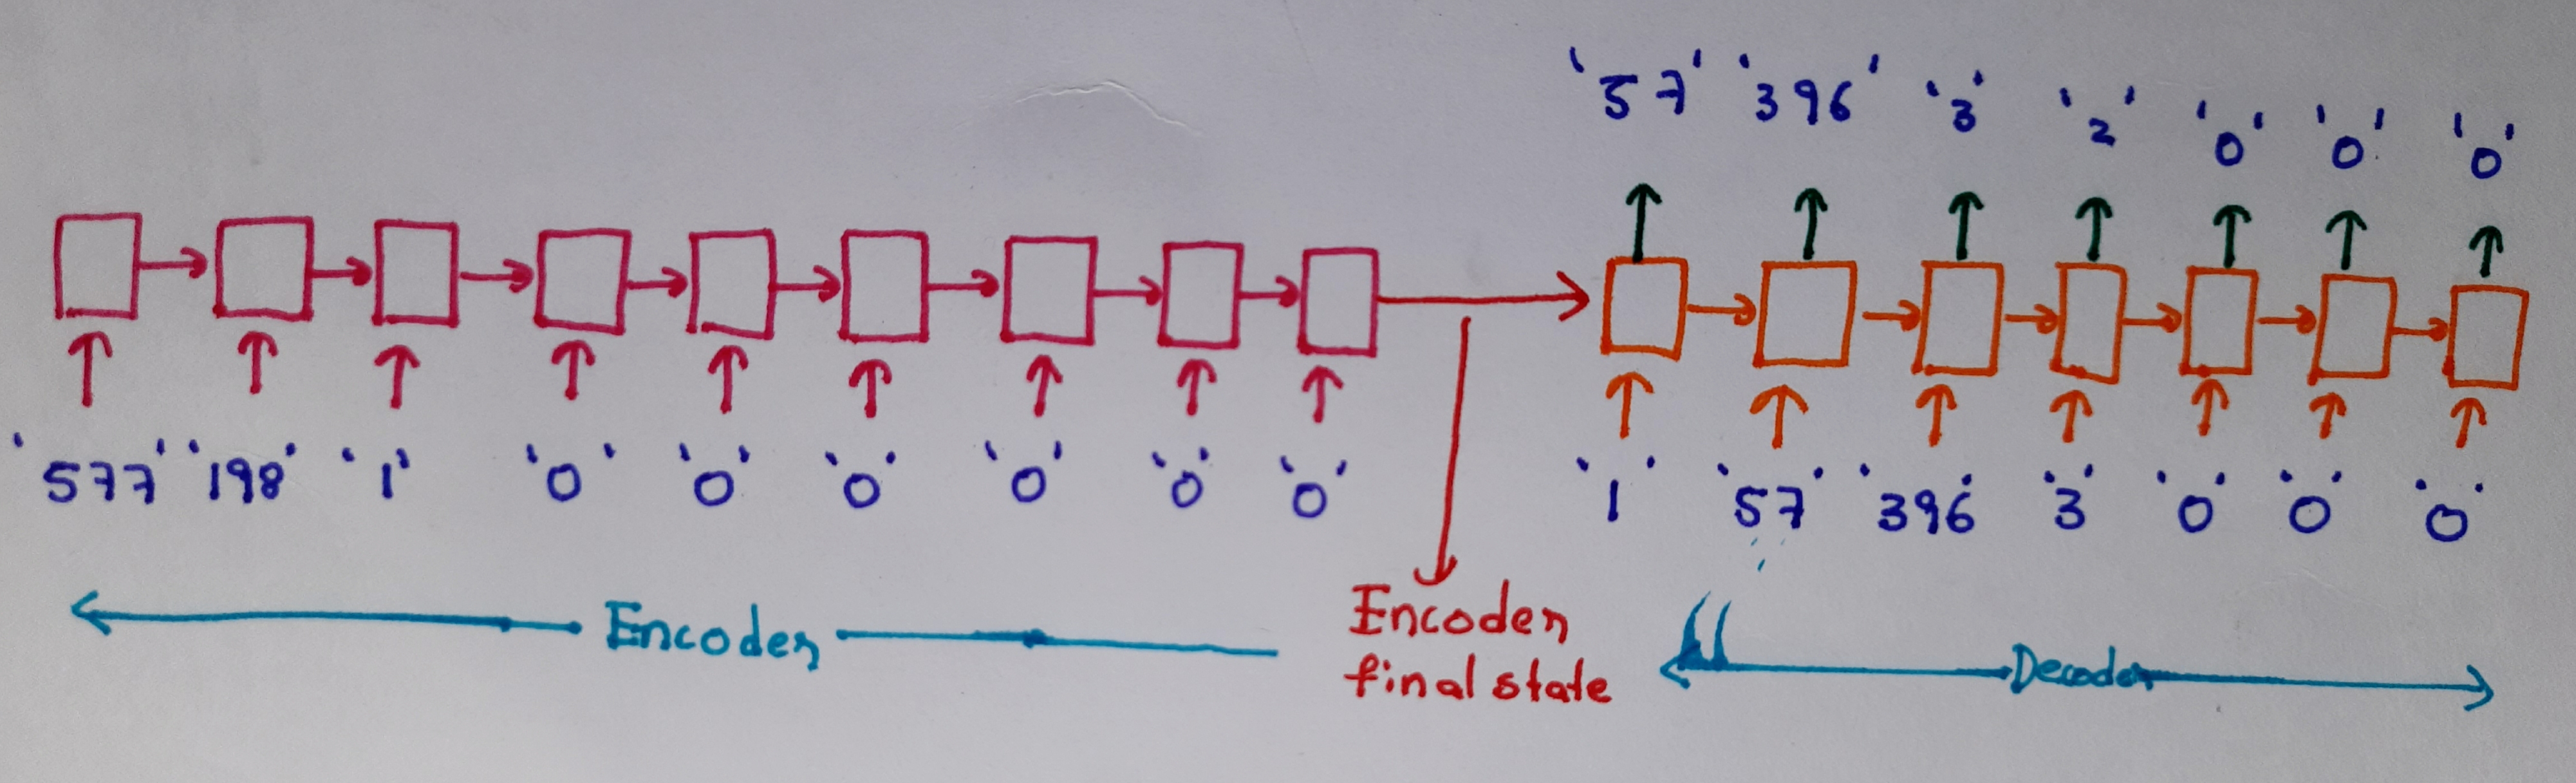 '57' '396' '3' '2' '0' '0' '0'
'577' '198' '1' '0' '0' '0' '0' '0' '0'
'1' '57' '396' '3' '0' '0' '0'
Encoder
Encoder
final state
Decoder